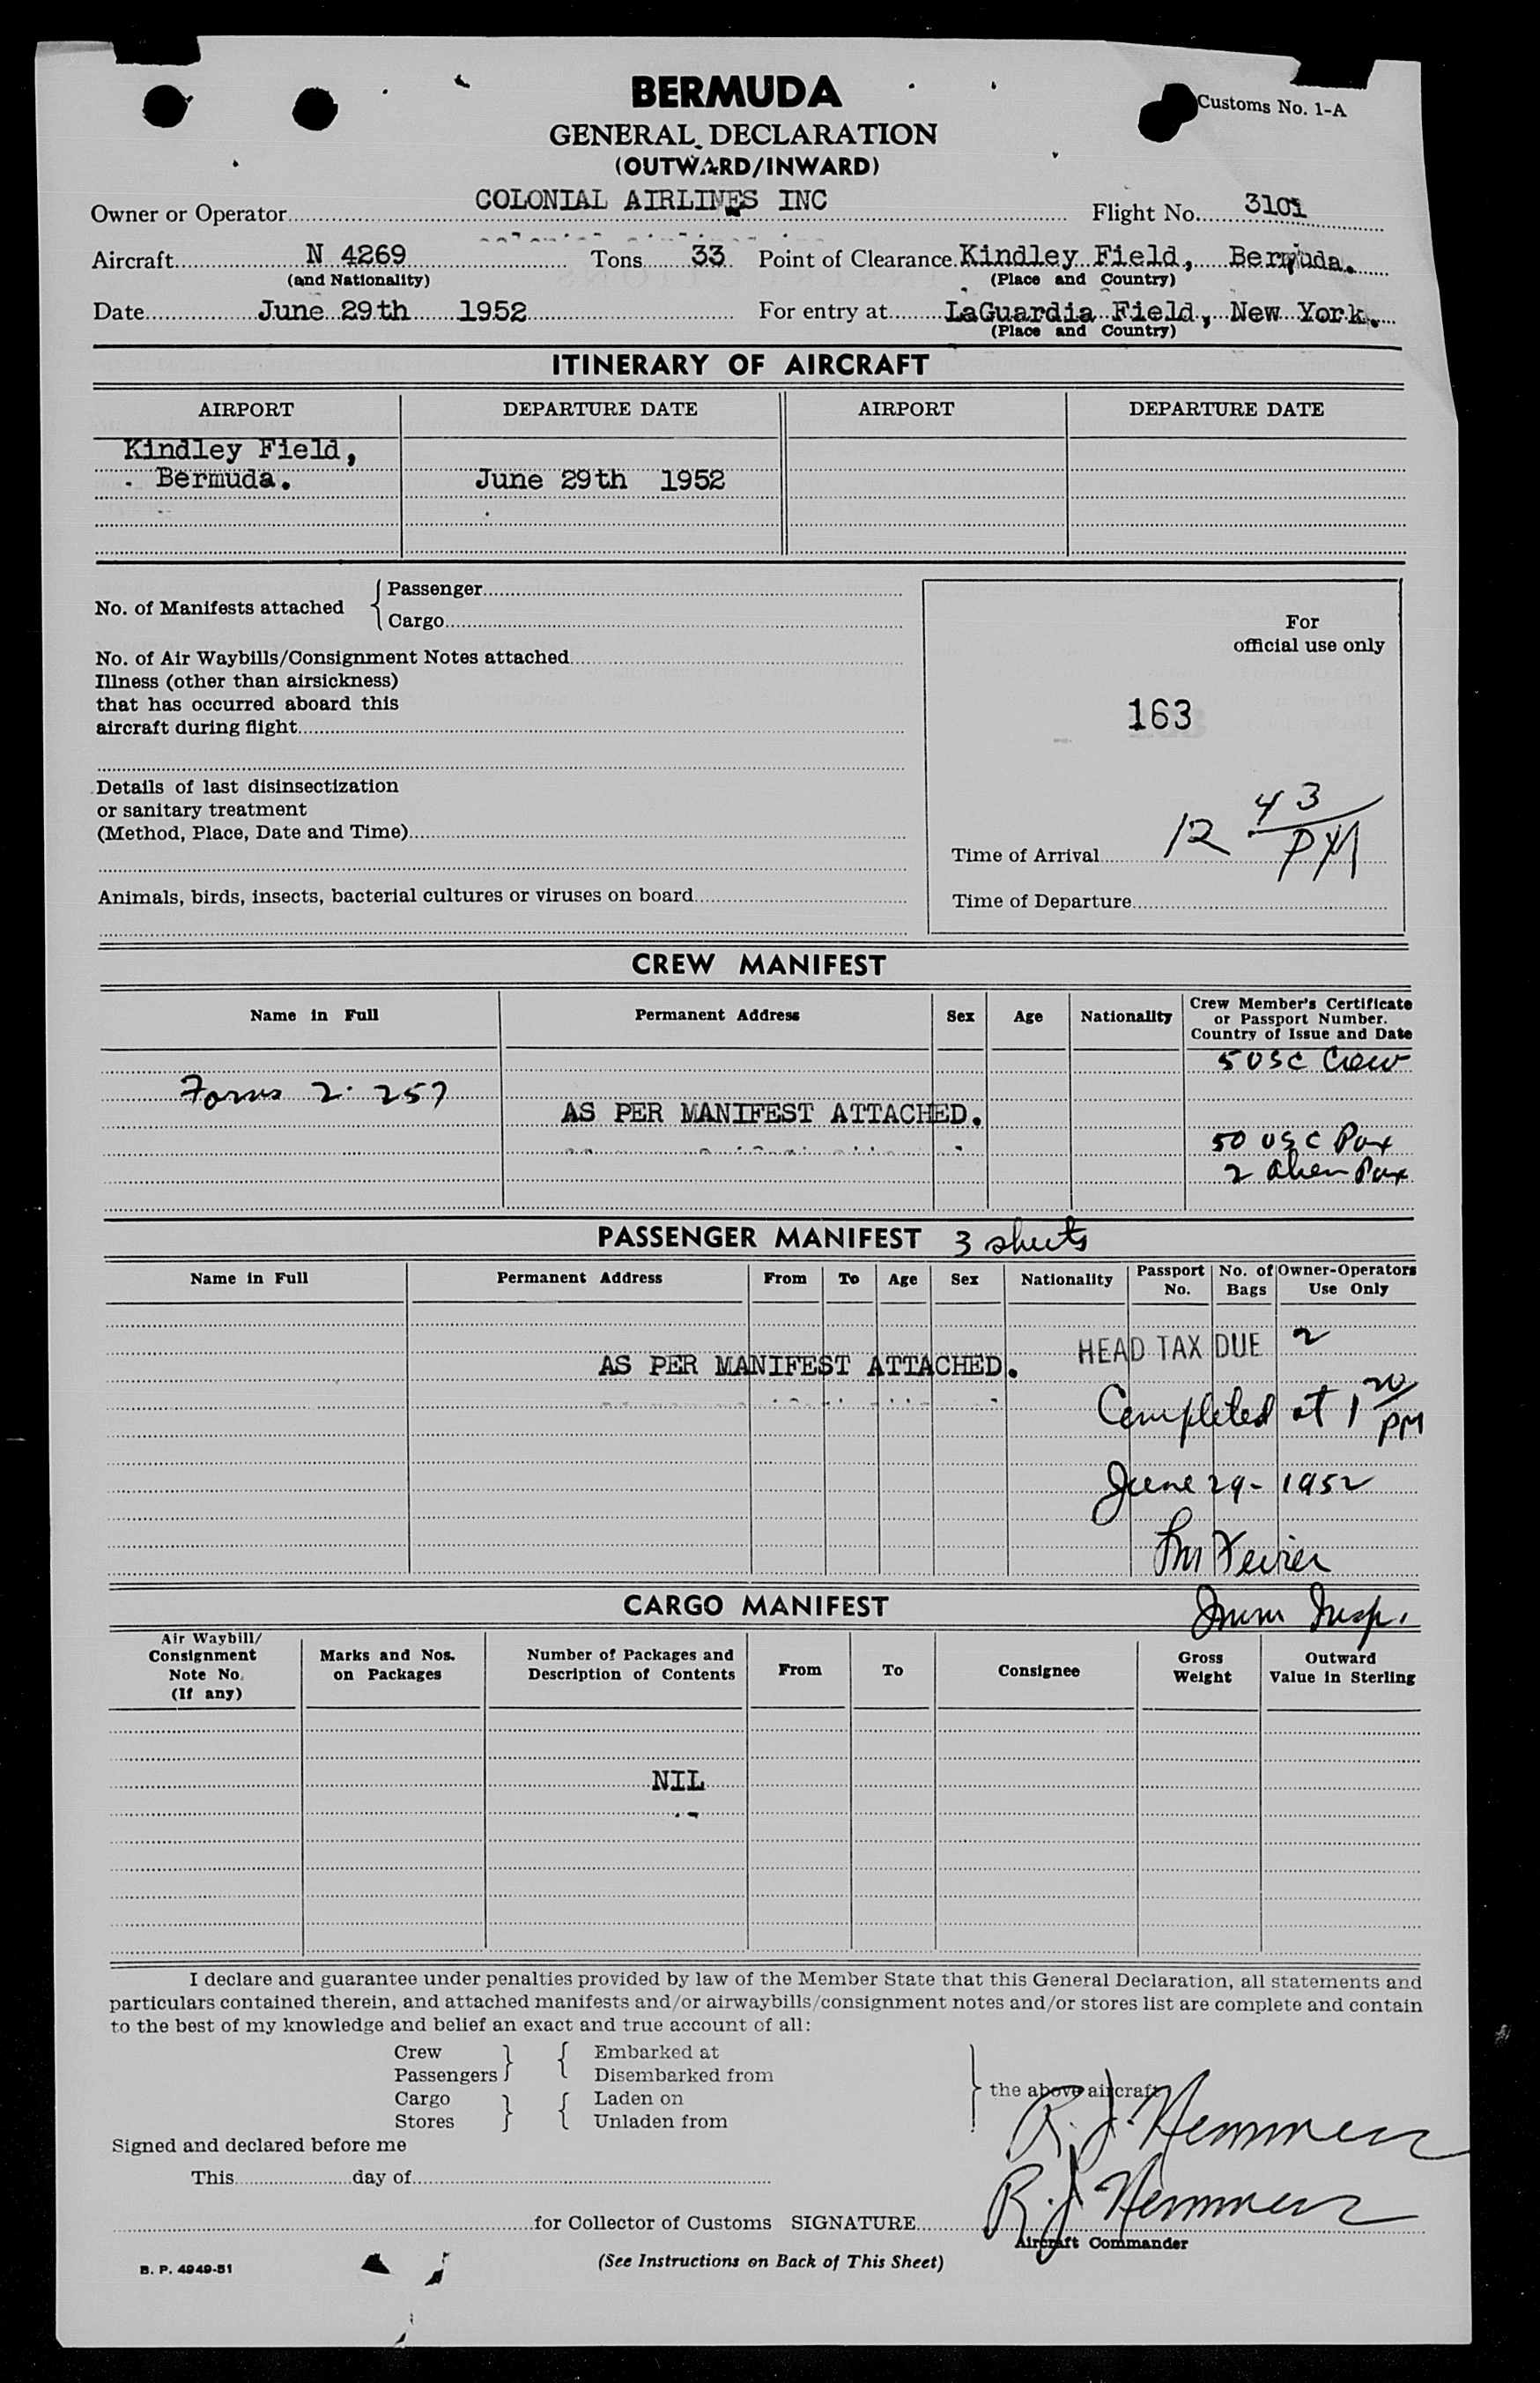 BERMUDA
Customs No. 1-A
GENERAL DECLARATION
(OUTWARD/INWARD)
Owner or Operator COLONIAL AIRLINES INC Flight No. 3101
Aircraft N 4269 Tons 33 Point of Clearance Kindley Field, Bermuda.
(and Nationality) (Place and Country)
Date June 29th 1952 For entry at LaGuardia Field, New York.
(Place and Country)
ITINERARY OF AIRCRAFT
AIRPORT DEPARTURE DATE AIRPORT DEPARTURE DATE
Kindley Field,
Bermuda. June 29th 1952
No. of Manifests attached { Passenger
Cargo
For
official use only
No. of Air Waybills/Consignment Notes attached
Illness (other than airsickness)
that has occurred aboard this
aircraft during flight
163
Details of last disinsectization
or sanitary treatment
(Method, Place, Date and Time)
Time of Arrival 12 43 PM
Animals, birds, insects, bacterial cultures or viruses on board
Time of Departure
CREW MANIFEST
Name in Full Permanent Address Sex Age Nationality Crew Member's Certificate
or Passport Number.
Country of Issue and Date
5 USC Crew
Forms 2-257
AS PER MANIFEST ATTACHED.
50 USC Pax
2 alien Pax
PASSENGER MANIFEST 3 sheets
Name in Full Permanent Address From To Age Sex Nationality Passport No. No. of Bags Owner-Operators Use Only
HEAD TAX DUE 2
AS PER MANIFEST ATTACHED.
Completed at 1 20 PM
June 29-1952
Imm Insp.
CARGO MANIFEST
Air Waybill/
Consignment
Note No.
(If any)
Marks and Nos.
on Packages
Number of Packages and
Description of Contents
From To Consignee
Gross
Weight
Outward
Value in Sterling
NIL
I declare and guarantee under penalties provided by law of the Member State that this General Declaration, all statements and
particulars contained therein, and attached manifests and/or airwaybills/consignment notes and/or stores list are complete and contain
to the best of my knowledge and belief an exact and true account of all:
Crew Embarked at
Passengers Disembarked from
Cargo Laden on the above aircraft
Stores Unladen from
R. J. Hemmen
Signed and declared before me
This day of
for Collector of Customs SIGNATURE R. J. Hemmen
Aircraft Commander
B. P. 4949-51
(See Instructions on Back of This Sheet)